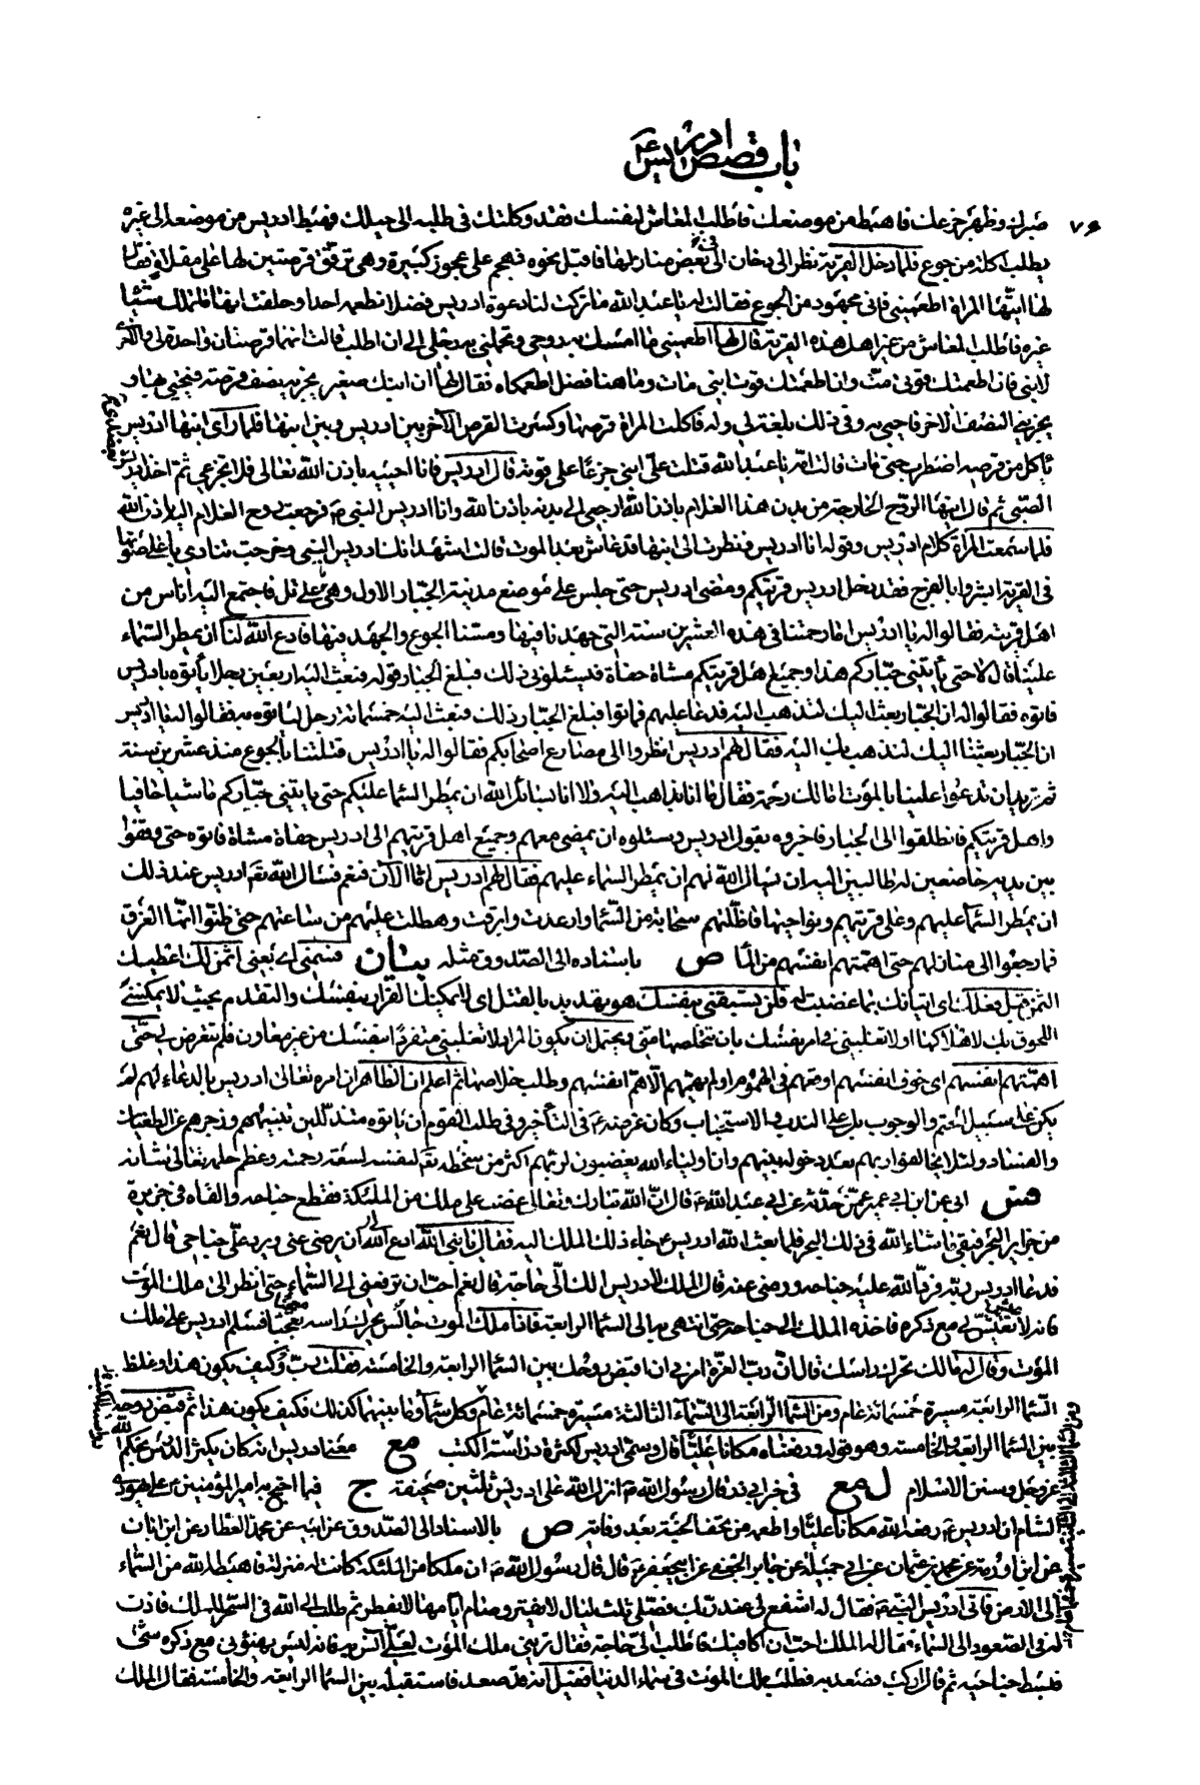 باب قصص ادريس ع
٧٦
صبرك وظهر جزعك فاهبط من موضعك فاطلب المعاش لنفسك فقد وكلتك في طلبه الى حيلك فهبط ادريس من موضعه الى غيره
يطلب اكلة من جوع فلما دخل القرية نظر الى دخان في بعض منازلها فاقبل نحوه فهجم على عجوز كبيرة وهي ترقق قرصتين لها على مقلاة فقال
لها ايتها المراة اطعميني فاني مجهود من الجوع فقالت له يا عبد الله ما تركت لنا دعوة ادريس فضلا نطعمه احدا وحلفت انها ما تملك شيئا
غيره فاطلب المعاش من غير اهل هذه القرية قال لها اطعميني ما امسك به روحي وتحملني به رجلي الى ان اطلب قالت انهما قرصتان واحدة لي والاخرى
لابني فان اطعمتك قوتي مت وان اطعمتك قوت ابني مات وما هنا فضل اطعمكاه فقال لها ان ابنك صغير يجزيه نصف قرصة فيحيى بها و
يجزيني النصف الاخر فاحيى به وفي ذلك بلغة لي وله فاكلت المراة قرصها وكسرت القرص الآخر بين ادريس وبين ابنها فلما راى ابنها ادريس
ياكل من قرصه اضطرب حتى مات قالت امه يا عبد الله قتلت علي ابني جزعا على قوته قال ادريس فانا احييه باذن الله تعالى فلا تجزعي ثم اخذ ادريس
بعضدي
الصبي ثم قال ايتها الروح الخارجة من بدن هذا الغلام باذن الله ارجعي الى بدنه باذن الله وانا ادريس النبي ص فرجعت روح الغلام اليه باذن الله
فلما سمعت المراة كلام ادريس وقوله انا ادريس ونظرت الى ابنها قد عاش بعد الموت قالت اشهد انك ادريس النبي وخرجت تنادي باعلى صوتها
في القرية ابشروا بالفرج فقد دخل ادريس قريتكم ومضى ادريس حتى جلس على موضع مدينة الجبار الاول وهي على تل فاجتمع اليه اناس من
اهل قريته فقالوا له يا ادريس اما رحمتنا في هذه العشرين سنة التي جهدنا فيها ومسنا الجوع والجهد فيها فادع الله لنا ان يمطر السماء
علينا قال لا حتى ياتيني جباركم هذا وجميع اهل قريتكم مشاة حفاة فيسئلوني ذلك فبلغ الجبار قوله فبعث اليه اربعين رجلا يأتوه بادريس
فاتوه فقالوا له ان الجبار بعثنا اليك لنذهب بك اليه فدعا عليهم فماتوا فبلغ الجبار ذلك فبعث اليه خمسمائة رجل لياتوه به فقالوا له يا ادريس
ان الجبار بعثنا اليك لنذهب بك اليه فقال لهم ادريس انظروا الى مصارع اصحابكم فقالوا له يا ادريس قتلتنا بالجوع منذ عشرين سنة
ثم تريد ان تدعوا علينا بالموت اما لك رحمة فقال ما انا بذاهب اليه ولا انا بسائل الله ان يمطر السماء عليكم حتى ياتيني جباركم ماشيا حافيا
واهل قريتكم فانطلقوا الى الجبار فاخبروه بقول ادريس وسئلوه ان يمضي معهم وجميع اهل قريتهم الى ادريس حفاة مشاة فاتوه حتى وقفوا
بين يديه خاضعين له طالبين اليه ان يسال الله لهم ان يمطر السماء عليهم فقال لهم ادريس اما الآن فنعم فسال الله تع ادريس عند ذلك
ان يمطر السماء عليهم وعلى قريتهم ونواحيها فاظلتهم سحابة من السماء وارعدت وابرقت وهطلت عليهم من ساعتهم حتى ظنوا انها الغرق
فما رجعوا الى منازلهم حتى اهمتهم انفسهم من الماء ص باسناده الى الصدوق مثله بيان فتسمني اي بعني اثمن لك اعطيك
الثمن قبل فعلك اي اتيانك بما غضبت له فلن تسبقني بنفسك هو تهديد بالقتل اي لا يمكنك الفرار بنفسك والتقدم بحيث لا يمكنني
اللحوق بك لاهلاكها او لا تغلبني في امر نفسك بان تتخلصها مني ويحتمل ان يكون المراد لا تغلبني متفردا بنفسك من غير معاون فلم تتعرض لي حتى
اهمتهم انفسهم اي خوف انفسهم اوقعهم في الهموم او لم يهمهم الا هم انفسهم وطلب خلاصها ثم اعلم ان الظاهر ان امره تعالى ادريس بالدعاء لهم لم
يكن على سبيل الحتم والوجوب بل على الندب والاستحباب وكان غرضه ع في التأخير وفي طلب القوم ان ياتوه متذللين تنبيههم وزجرهم عن الطغيان
والفساد ولئلا يخالفوا ربهم بعد دخوله بينهم وان اولياء الله يغضبون لربهم اكثر من سخطه تع لنفسه لسعة رحمته وعظم حلمه تعالى شانه
فس ابي عن ابن ابي عمير عمن حدثه عن ابي عبد الله ع قال ان الله تبارك وتعالى غضب على ملك من الملئكة فقطع جناحه والقاه في جزيرة
من جزاير البحر فبقي ما شاء الله في ذلك البحر فلما بعث الله ادريس ع جاء ذلك الملك اليه فقال يا نبي الله ادع الله لي ان يرضى عني ويرد علي جناحي قال نعم
فدعا ادريس ربه فرد الله عليه جناحه ورضي عنه قال الملك لادريس الك الي حاجة قال نعم احب ان ترفعني الى السماء حتى انظر الى ملك الموت
فانه لا تعيش لي مع ذكره فاخذه الملك الى جناحه حتى انتهى به الى السماء الرابعة فاذا ملك الموت جالس يحرك راسه تعجبا فسلم ادريس على ملك
الموت وقال له ما لك تحرك راسك قال ان رب العزة امرني ان اقبض روحك بين السماء الرابعة والخامسة فقلت رب وكيف يكون هذا وغلظ
السماء الرابعة مسيرة خمسمائة عام ومن السماء الرابعة الى السماء الثالثة مسيرة خمسمائة عام وكل سماء وما بينهما كذلك فكيف يكون هذا ثم قبض روحه
بين السماء الرابعة والخامسة وهو قوله ورفعناه مكانا عليا قال وسمي ادريس لكثرة دراسته الكتب مع معنا ادريس انه كان يكثر الدرس بحكم الله
عز وجل وسنن الاسلام ل مع في خبر ابي ذر قال رسول الله ص انزل الله على ادريس ثلثين صحيفة ج فيما احتج به امير المؤمنين ع على يهودي
الشام ان ادريس ع رفعه الله مكانا عليا واطعمه من تحف الجنة بعد وفاته ص بالاسناد الى الصدوق عن ابيه عن محمد العطار عن ابن ابان
عن ابن اورمة عن محمد بن عثمان عن ابي جميلة عن جابر الجعفي عن ابي جعفر ع قال قال رسول الله ص ان ملكا من الملئكة كانت له منزلة فاهبطه الله من السماء
الى الارض فاتى ادريس النبي ع فقال له اشفع لي عند ربك فصلى ثلث ليال لا يفتر وصام ايامها لا يفطر ثم طلب الى الله في السحر للملك فاذن
له في الصعود الى السماء فقال له الملك احب ان اكافيك فاطلب الي حاجة فقال تريني ملك الموت لعلي آنس به فانه ليس يهنؤني مع ذكره شئ
فبسط جناحيه ثم قال اركب فصعد به فطلب ملك الموت في سماء الدنيا فقيل انه قد صعد فاستقبله بين السماء الرابعة والخامسة فقال الملك